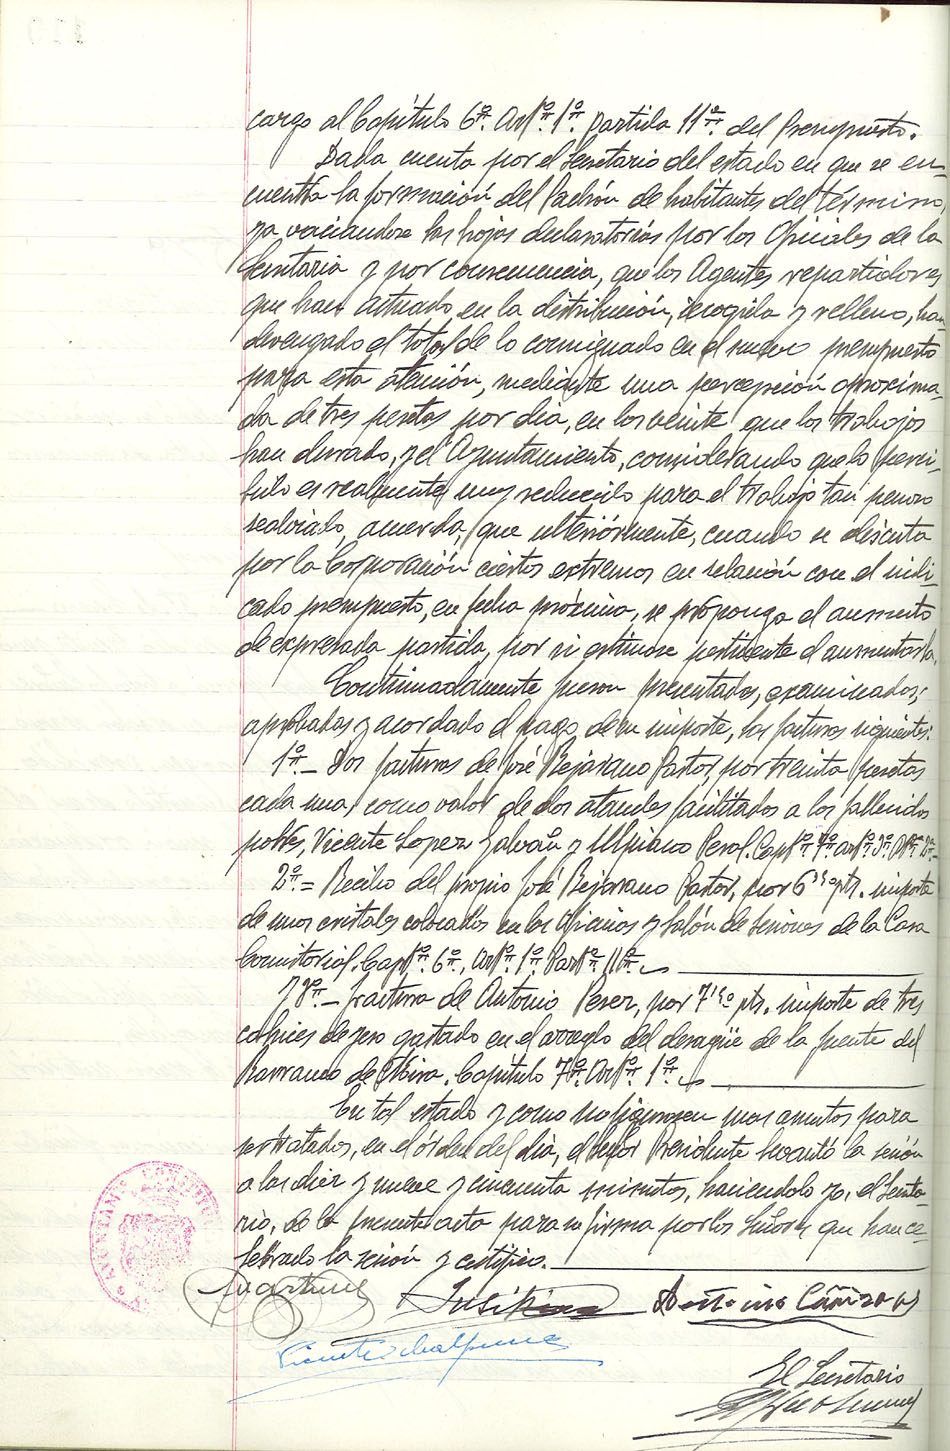 cargo al Capítulo 6º. Artº. 1º. partida 11ª. del Presupuesto.
Dada cuenta por el Secretario del estado en que se en-
cuentra la formación del Padrón de habitantes del término,
ya vaciandose las hojas declaratorias por los Oficiales de la
Secretaria y por consecuencia, que los Agentes repartidores
que han actuado en la distribución, recogida y relleno, han
devengado el total de lo consignado en el nuevo presupuesto
para esta atención, mediante una percepción aproxima-
da de tres pesetas por dia, en los veinte que los trabajos
han durado, y el Ayuntamiento, considerando que lo perci-
bido es realmente muy reducido para el trabajo tan penoso
realizado, acuerda, que ulteriórmente, cuando se discuta
por la Corporación ciertos extremos en relación con el indi-
cado presupuesto, en fecha próxima, se proponga el aumento
de expresada partida, por si estimase pertinente el aumentarla.
Continuadamente fueron presentadas, examinadas,
aprobadas y acordado el pago de su importe, las facturas siguientes:
1ª.- Dos facturas de José Bejarano Pastor, por treinta pesetas
cada una, como valor de dos ataudes facilitados a los fallecidos
pobres, Vicente Lopez Galván y Ulpiano Perol. Capº. 7º. artº. 3º.
2ª.= Recibo del propio José Bejarano Pastor, por 6'50 pts. importe
de unos cristales colocados en las oficinas y salón de sesiones de la Casa
Consistorial. Capº. 6º., artº. 1º. Parª. 11ª.
Y 3ª.- factura de Antonio Perez, por 7'50 pts. importe de tres
cahices de yeso gastado en el arreglo del desagüe de la fuente del
Barranco de . Capítulo 7º. Artº. 1º.
En tal estado y como no figurasen mas asuntos para
ser tratados, en el órden del dia, el Señor Presidente levantó la sesión
a las diez y nueve y cincuenta minutos, haciendolo yo, el Secreta-
rio, de la presente acta para su firma por los Señores que han ce-
lebrado la sesión y certifico.
Martinez
Antonio Cánovas
Vicente
El Secretario